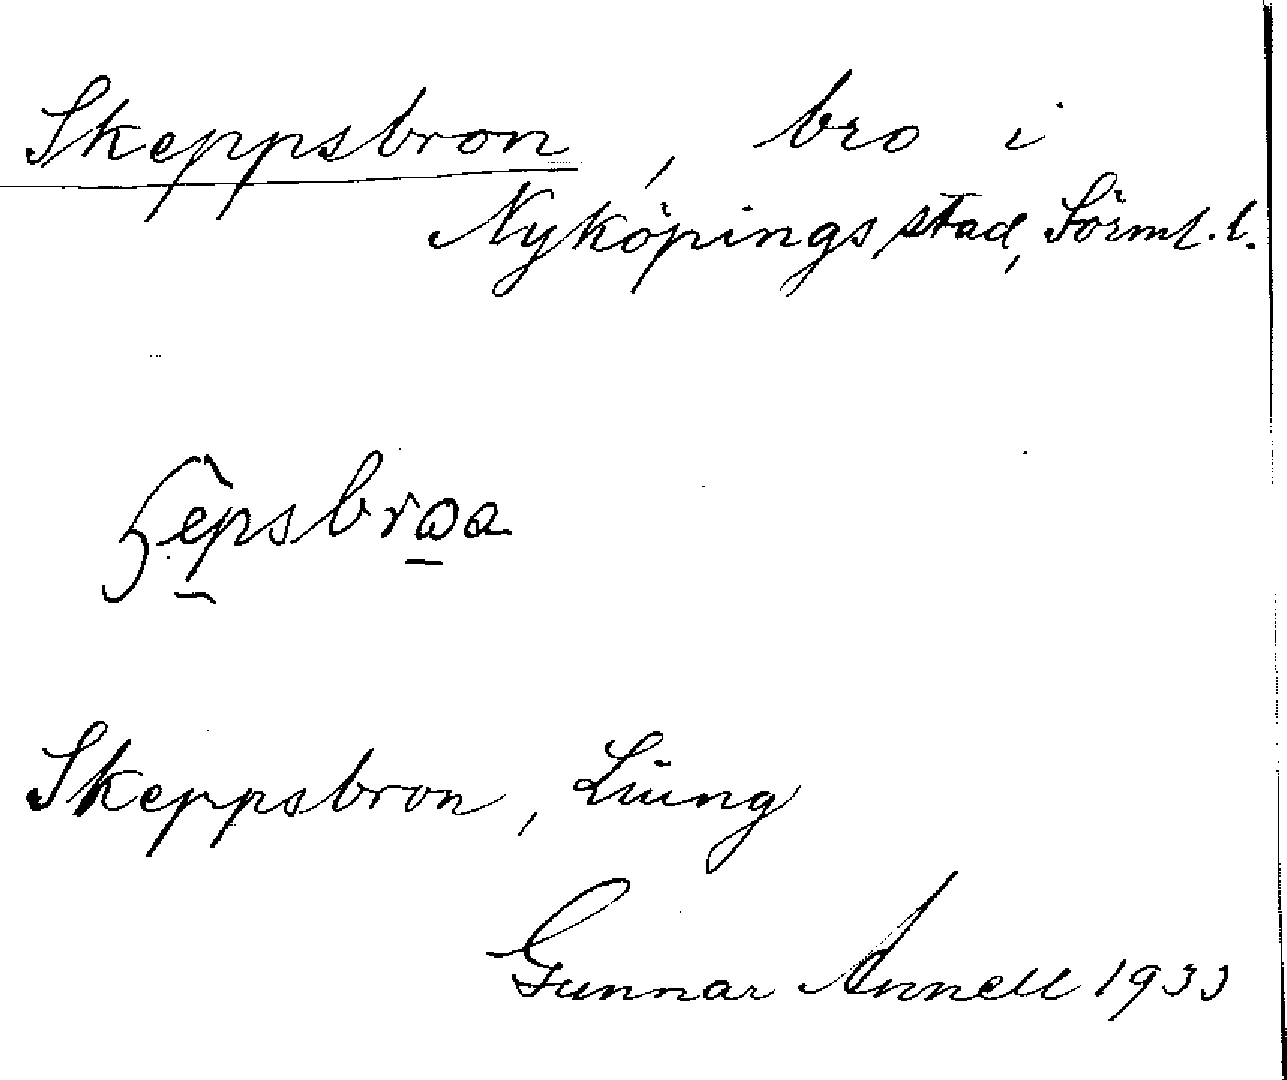 Skeppsbron, bro i
Nyköpings stad, Sörml. l.
Skeppsbron, Liung
Gunnar Annell 1933